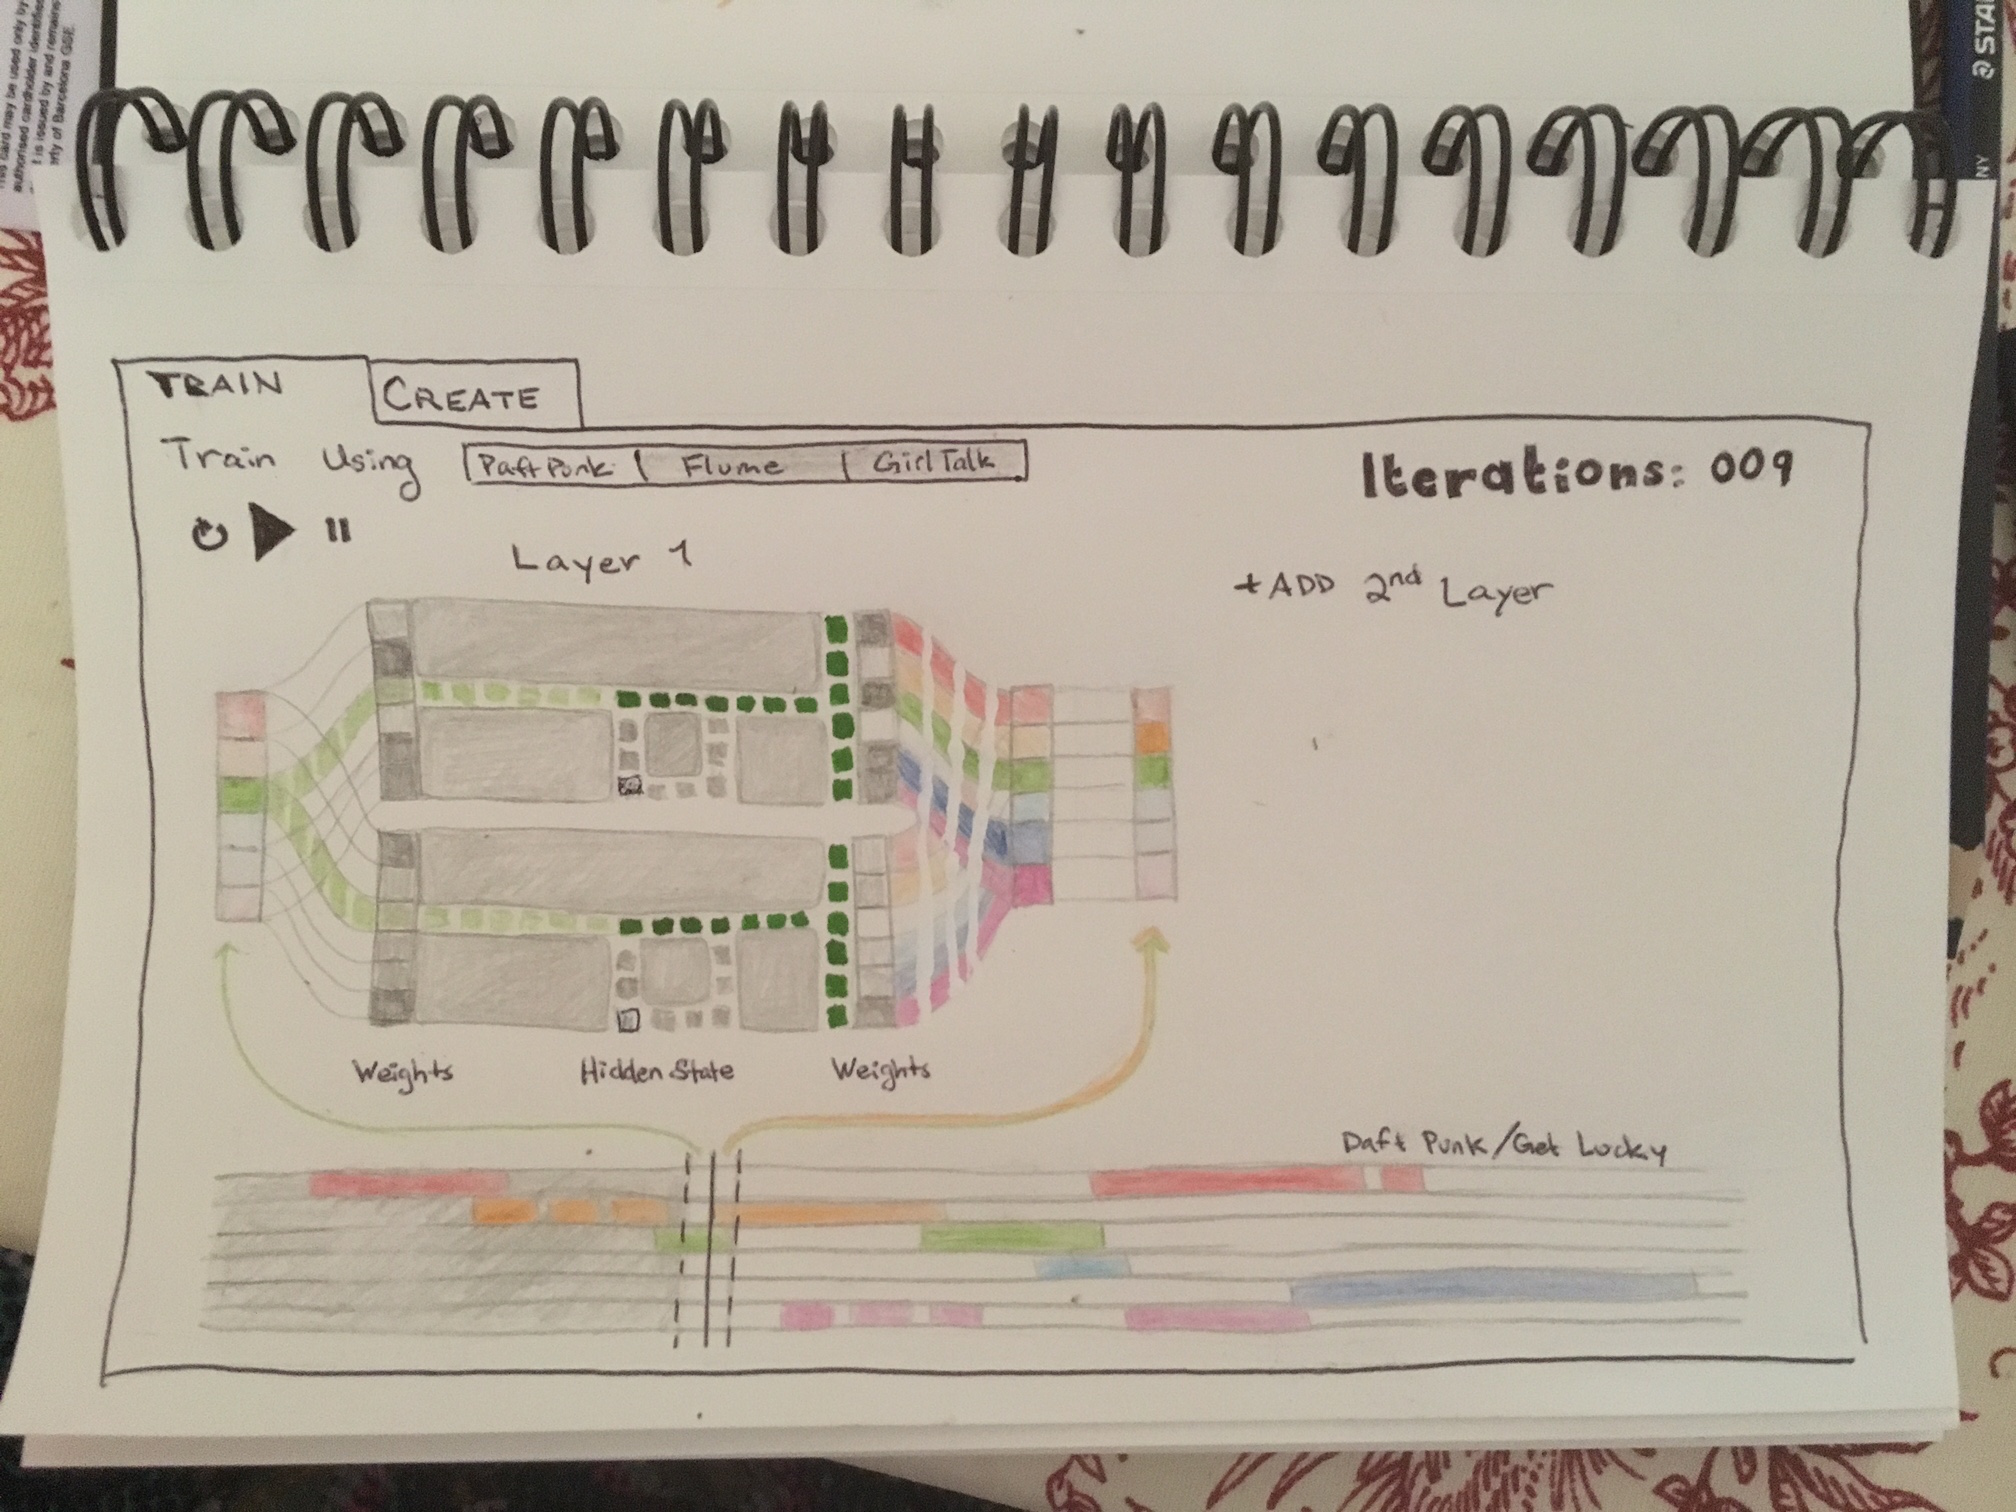 card may be used only by
authorised cardholder identified
t is issued by and remains
of Barcelona GSE.
@ STA
NY
TRAIN
CREATE
Train Using Daft Punk | Flume | Girl Talk
Iterations: 009
Layer 1
+ADD 2nd Layer
Weights
Hidden State
Weights
Daft Punk/Get Lucky